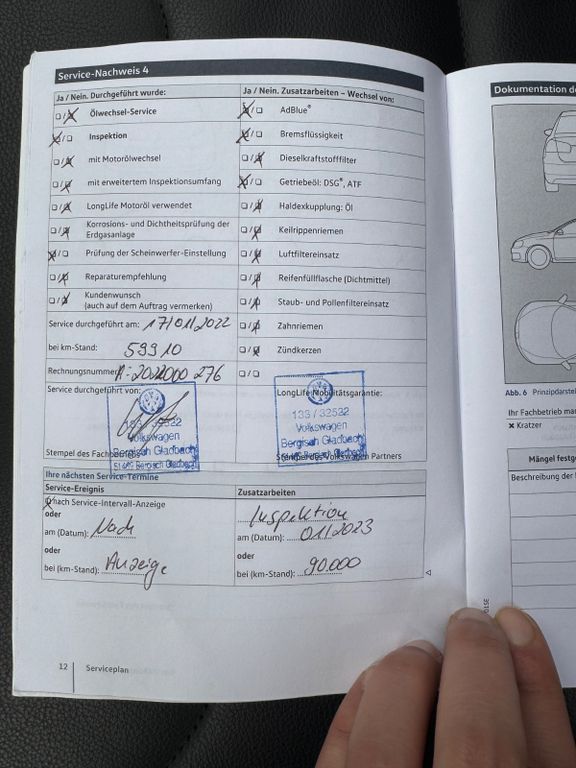 Service-Nachweis 4
Ja / Nein. Durchgeführt wurde:
Ja / Nein. Zusatzarbeiten – Wechsel von:
Ölwechsel-Service
AdBlue®
Inspektion
Bremsflüssigkeit
mit Motorölwechsel
Dieselkraftstofffilter
mit erweitertem Inspektionsumfang
Getriebeöl: DSG®, ATF
LongLife Motoröl verwendet
Haldexkupplung: Öl
Korrosions- und Dichtheitsprüfung der
Erdgasanlage
Keilrippenriemen
Prüfung der Scheinwerfer-Einstellung
Luftfiltereinsatz
Reparaturempfehlung
Reifenfüllflasche (Dichtmittel)
Kundenwunsch
(auch auf dem Auftrag vermerken)
Staub- und Pollenfiltereinsatz
Service durchgeführt am: 17/01/2022
Zahnriemen
bei km-Stand: 59910
Zündkerzen
Rechnungsnummer:
Service durchgeführt von:
LongLife Mobilitätsgarantie:
133 / 32532
Volkswagen
Bergisch Gladbach
51465 Bergisch Gladbach
Stempel des Fachbetriebes
133 / 32532
Volkswagen
Bergisch Gladbach
Bergisch Gladbach
Stempel des Volkswagen Partners
Ihre nächsten Service-Termine
Service-Ereignis
Zusatzarbeiten
nach Service-Intervall-Anzeige
Inspektion
oder
am (Datum): Nach
am (Datum): 01/2023
oder
oder
bei (km-Stand): Anzeige
bei (km-Stand): 90.000
12 Serviceplan
Dokumentation de
Abb. 6 Prinzipdarste
Ihr Fachbetrieb ma
✕ Kratzer
Mängel festg
Beschreibung der